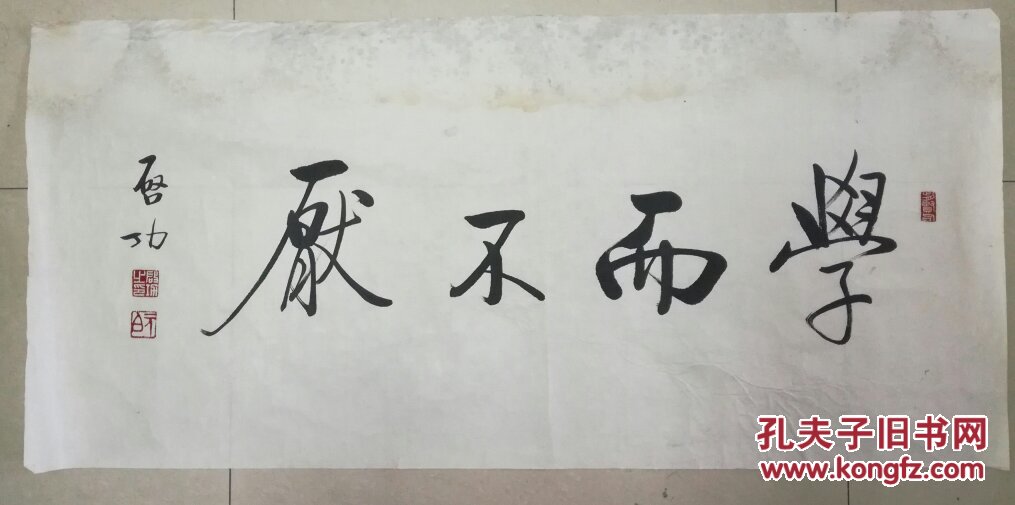 學而不厭
啓功
孔夫子旧书网
www.kongfz.com